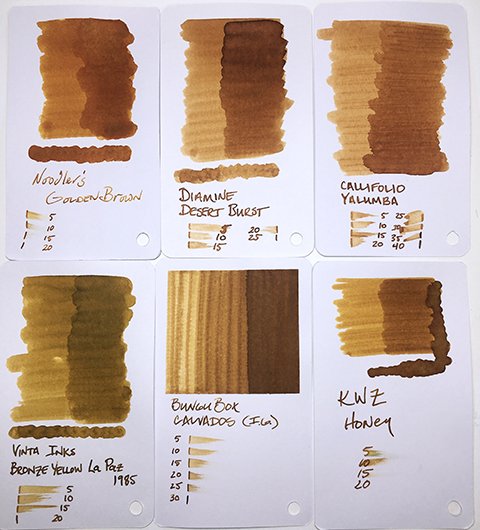 Noodler's
Golden Brown
5
10
15
20
Diamine
Desert Burst
5 20
10 25
15
Callifolio
Yalumba
5 25
10 30
15 35
20 40
Vinta Inks
Bronze Yellow La Paz
1985
5
10
15
20
BunguBox
Calvados (I.G.)
5
10
15
20
25
30
KWZ
Honey
5
10
15
20